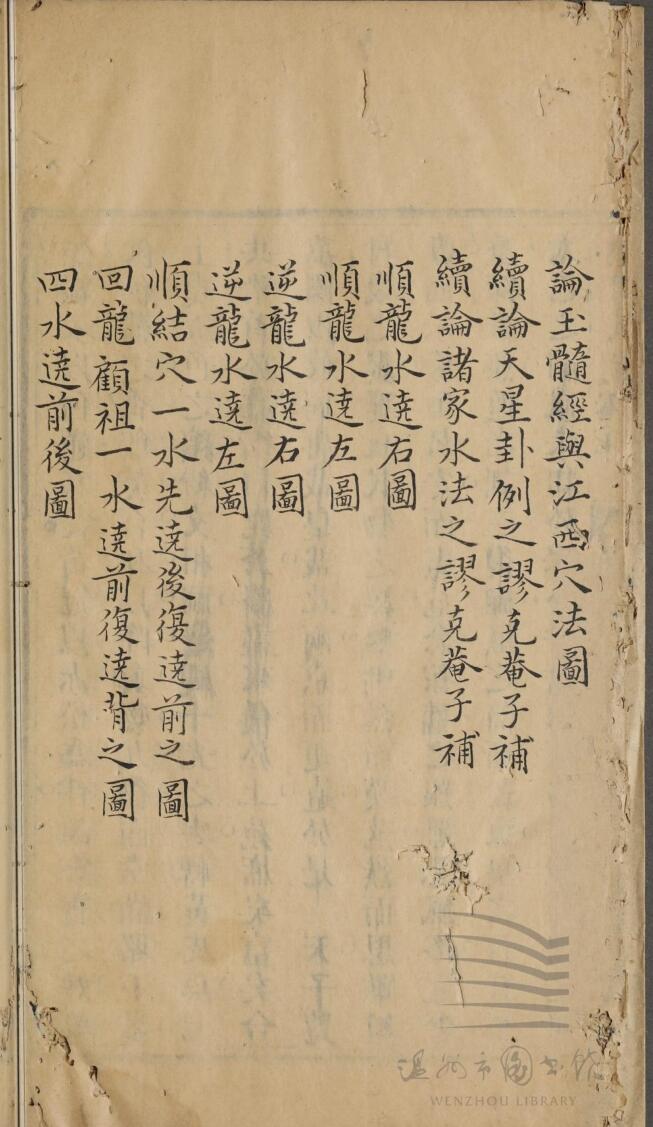 論玉髓經與江西穴法圖
續論天星卦例之謬克菴子補
續論諸家水法之謬克菴子補
順龍水遶右圖
順龍水遶左圖
逆龍水遶右圖
逆龍水遶左圖
順結穴一水先遶後復遶前之圖
回龍顧祖一水遶前復遶背之圖
四水遶前後圖
温州市图书馆
WENZHOU LIBRARY